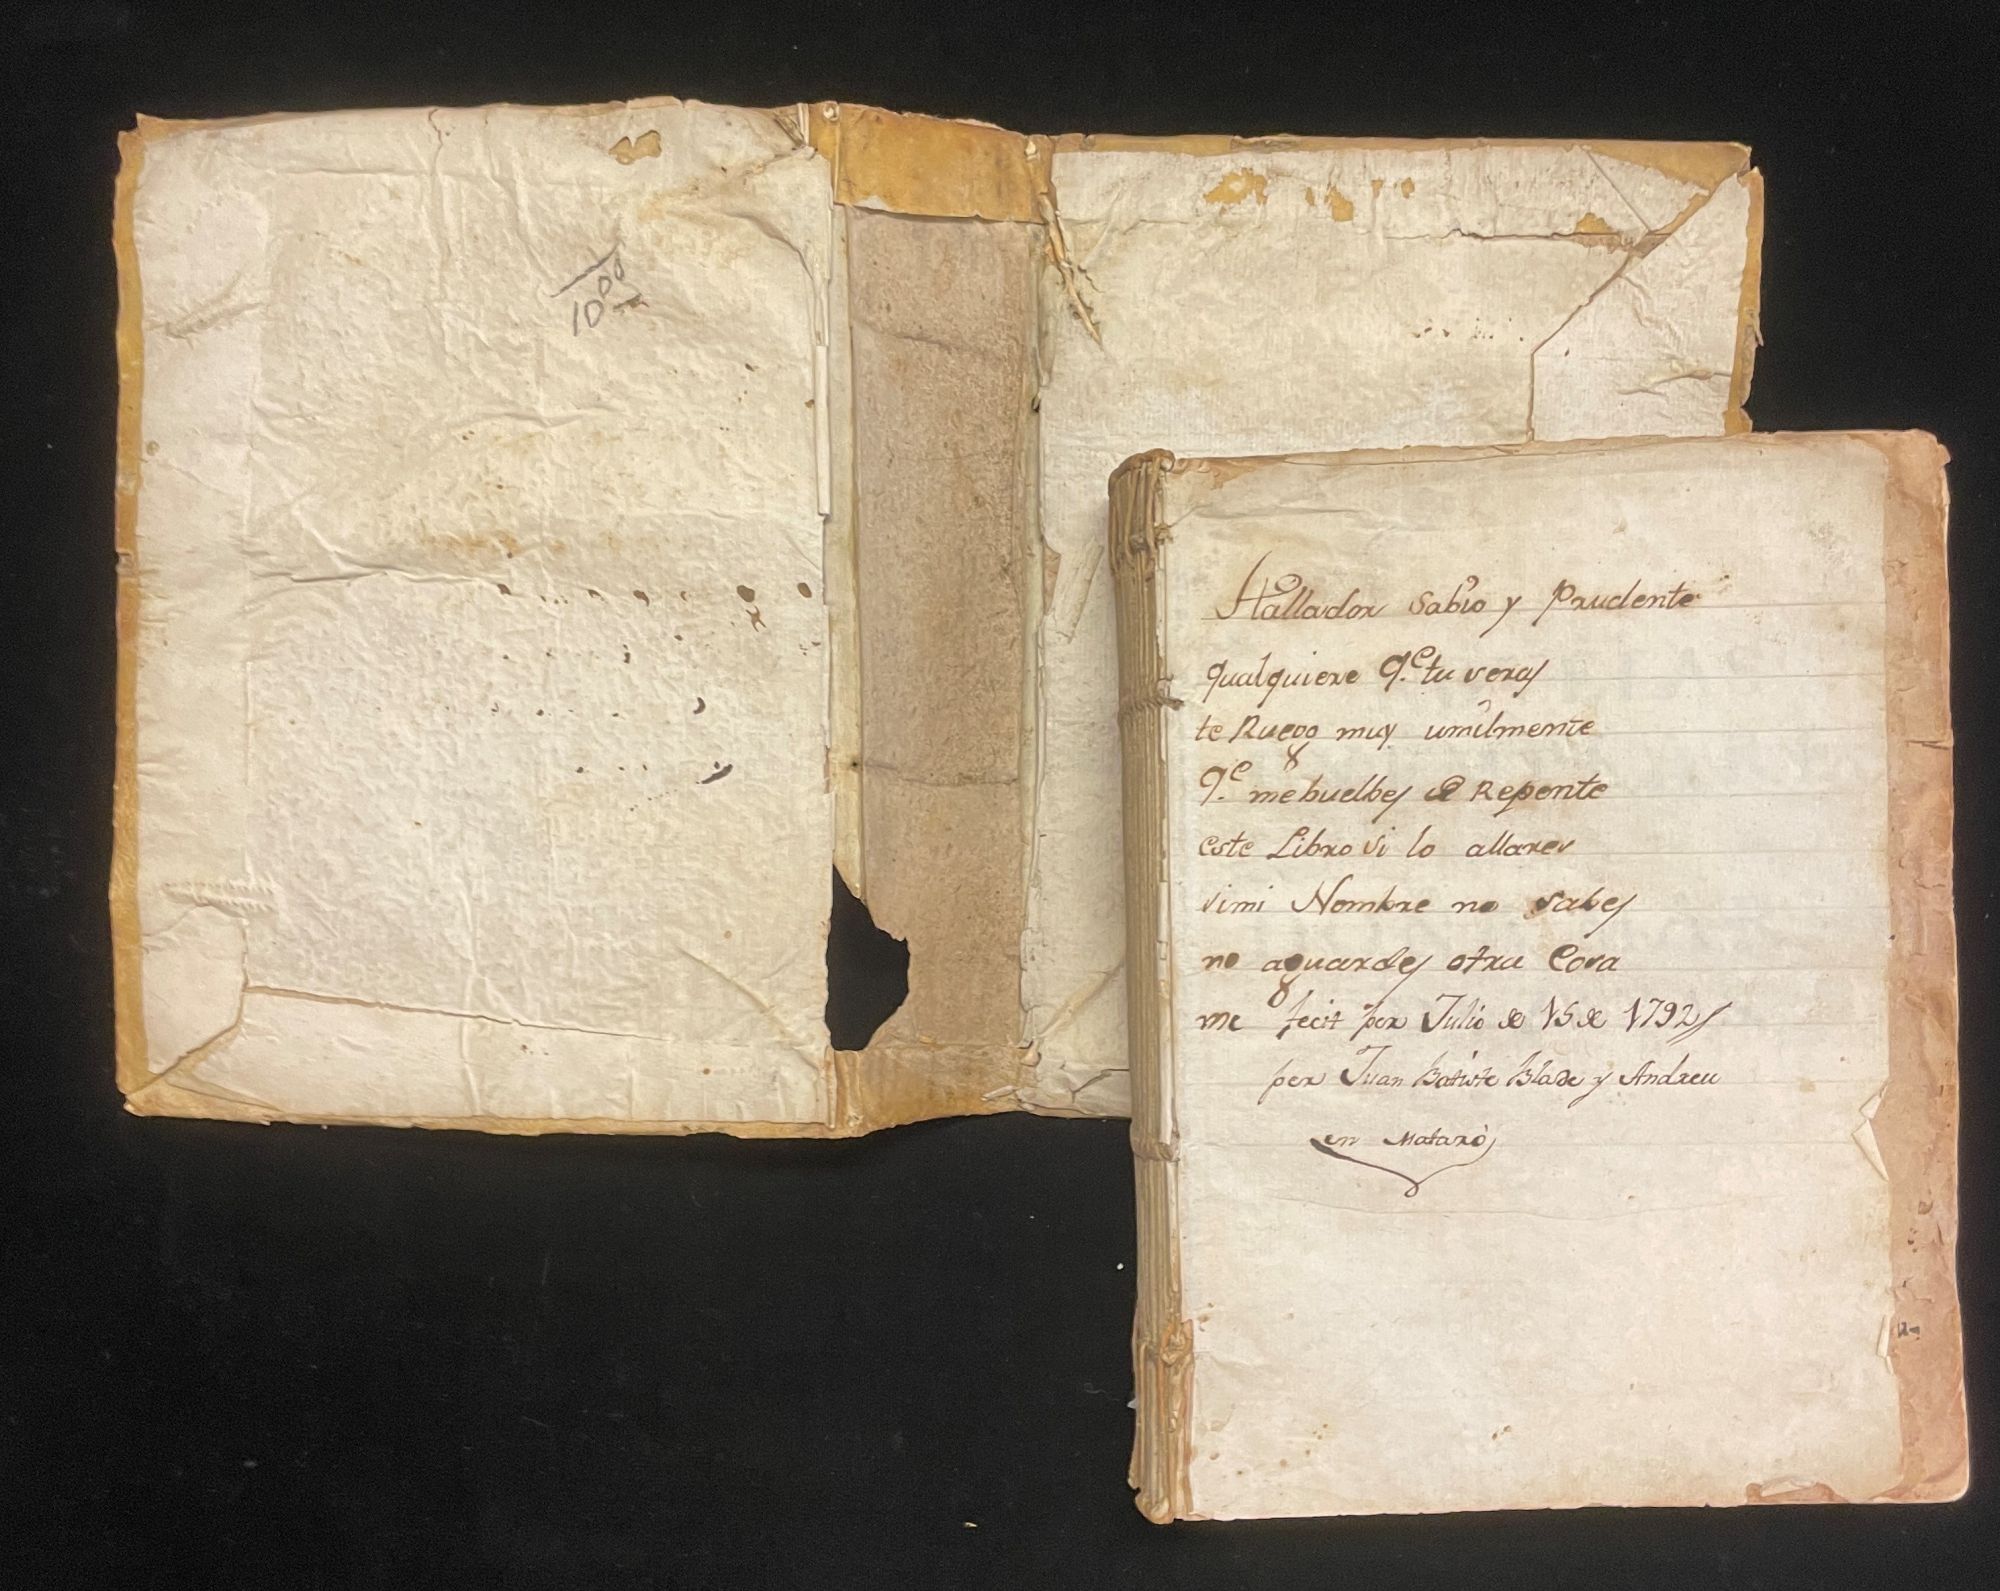 10 00
Hallador Sabio y Prudente
qualquiere q.e tu veras
te Ruego muy umilmente
q.e me buelbes de Repente
este Libro si lo allares
si mi Nombre no sabes
no aguardes otra Cosa
me fecit per Julio de 15 de 1792
per Juan Batiste Blade y Andreu
en Mataró